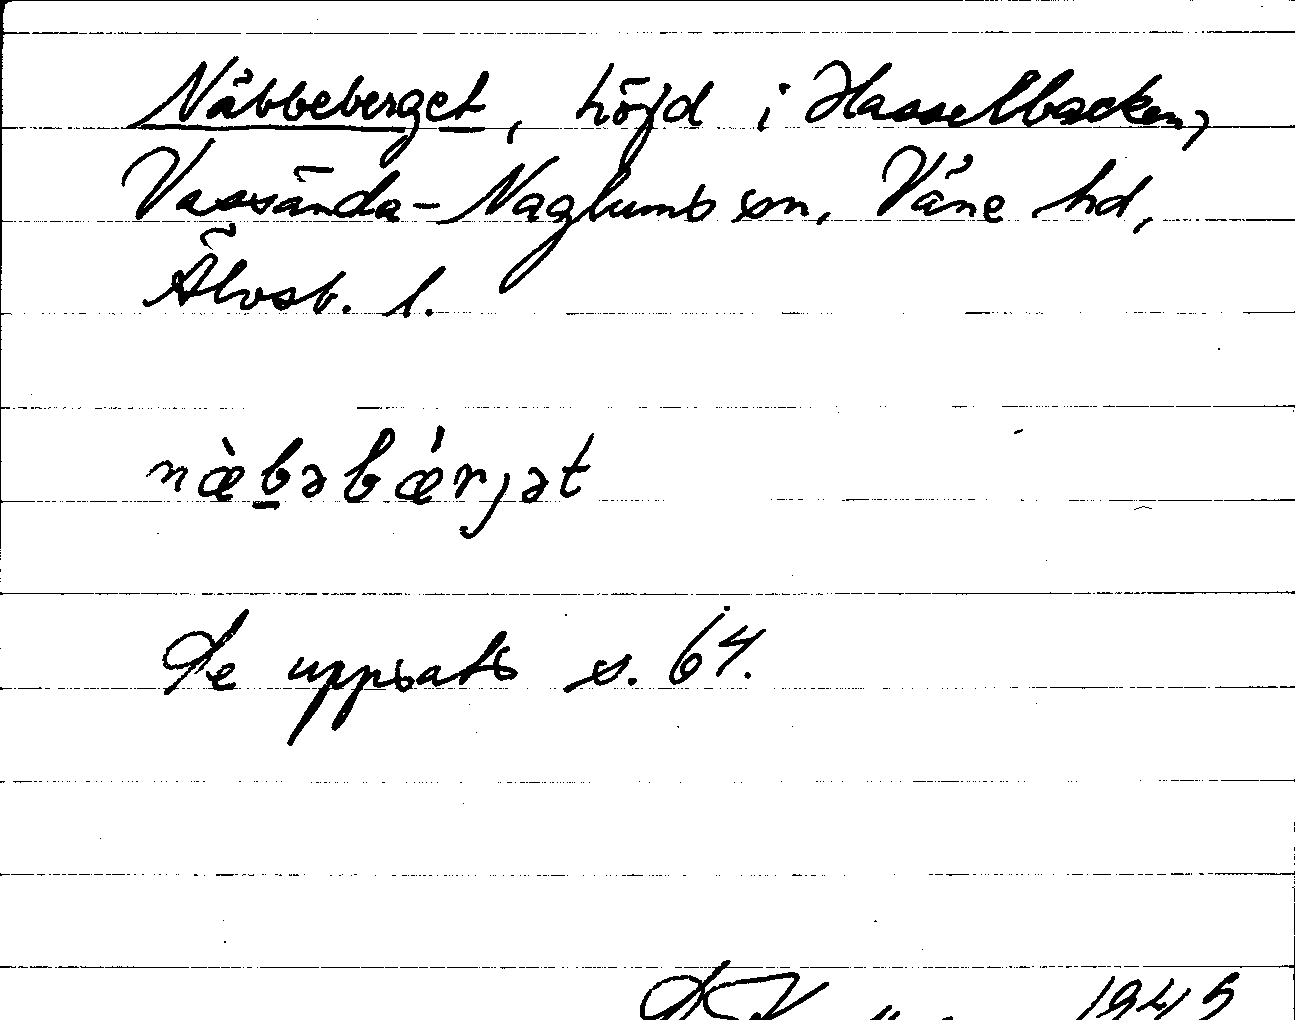 Näbbeberget, höjd i Hasselbacken,
Vassända-Naglums sn, Väne hd,
Älvsb. l.
næ̀b̲əbǽrjət
Se uppsats s. 64.
1945